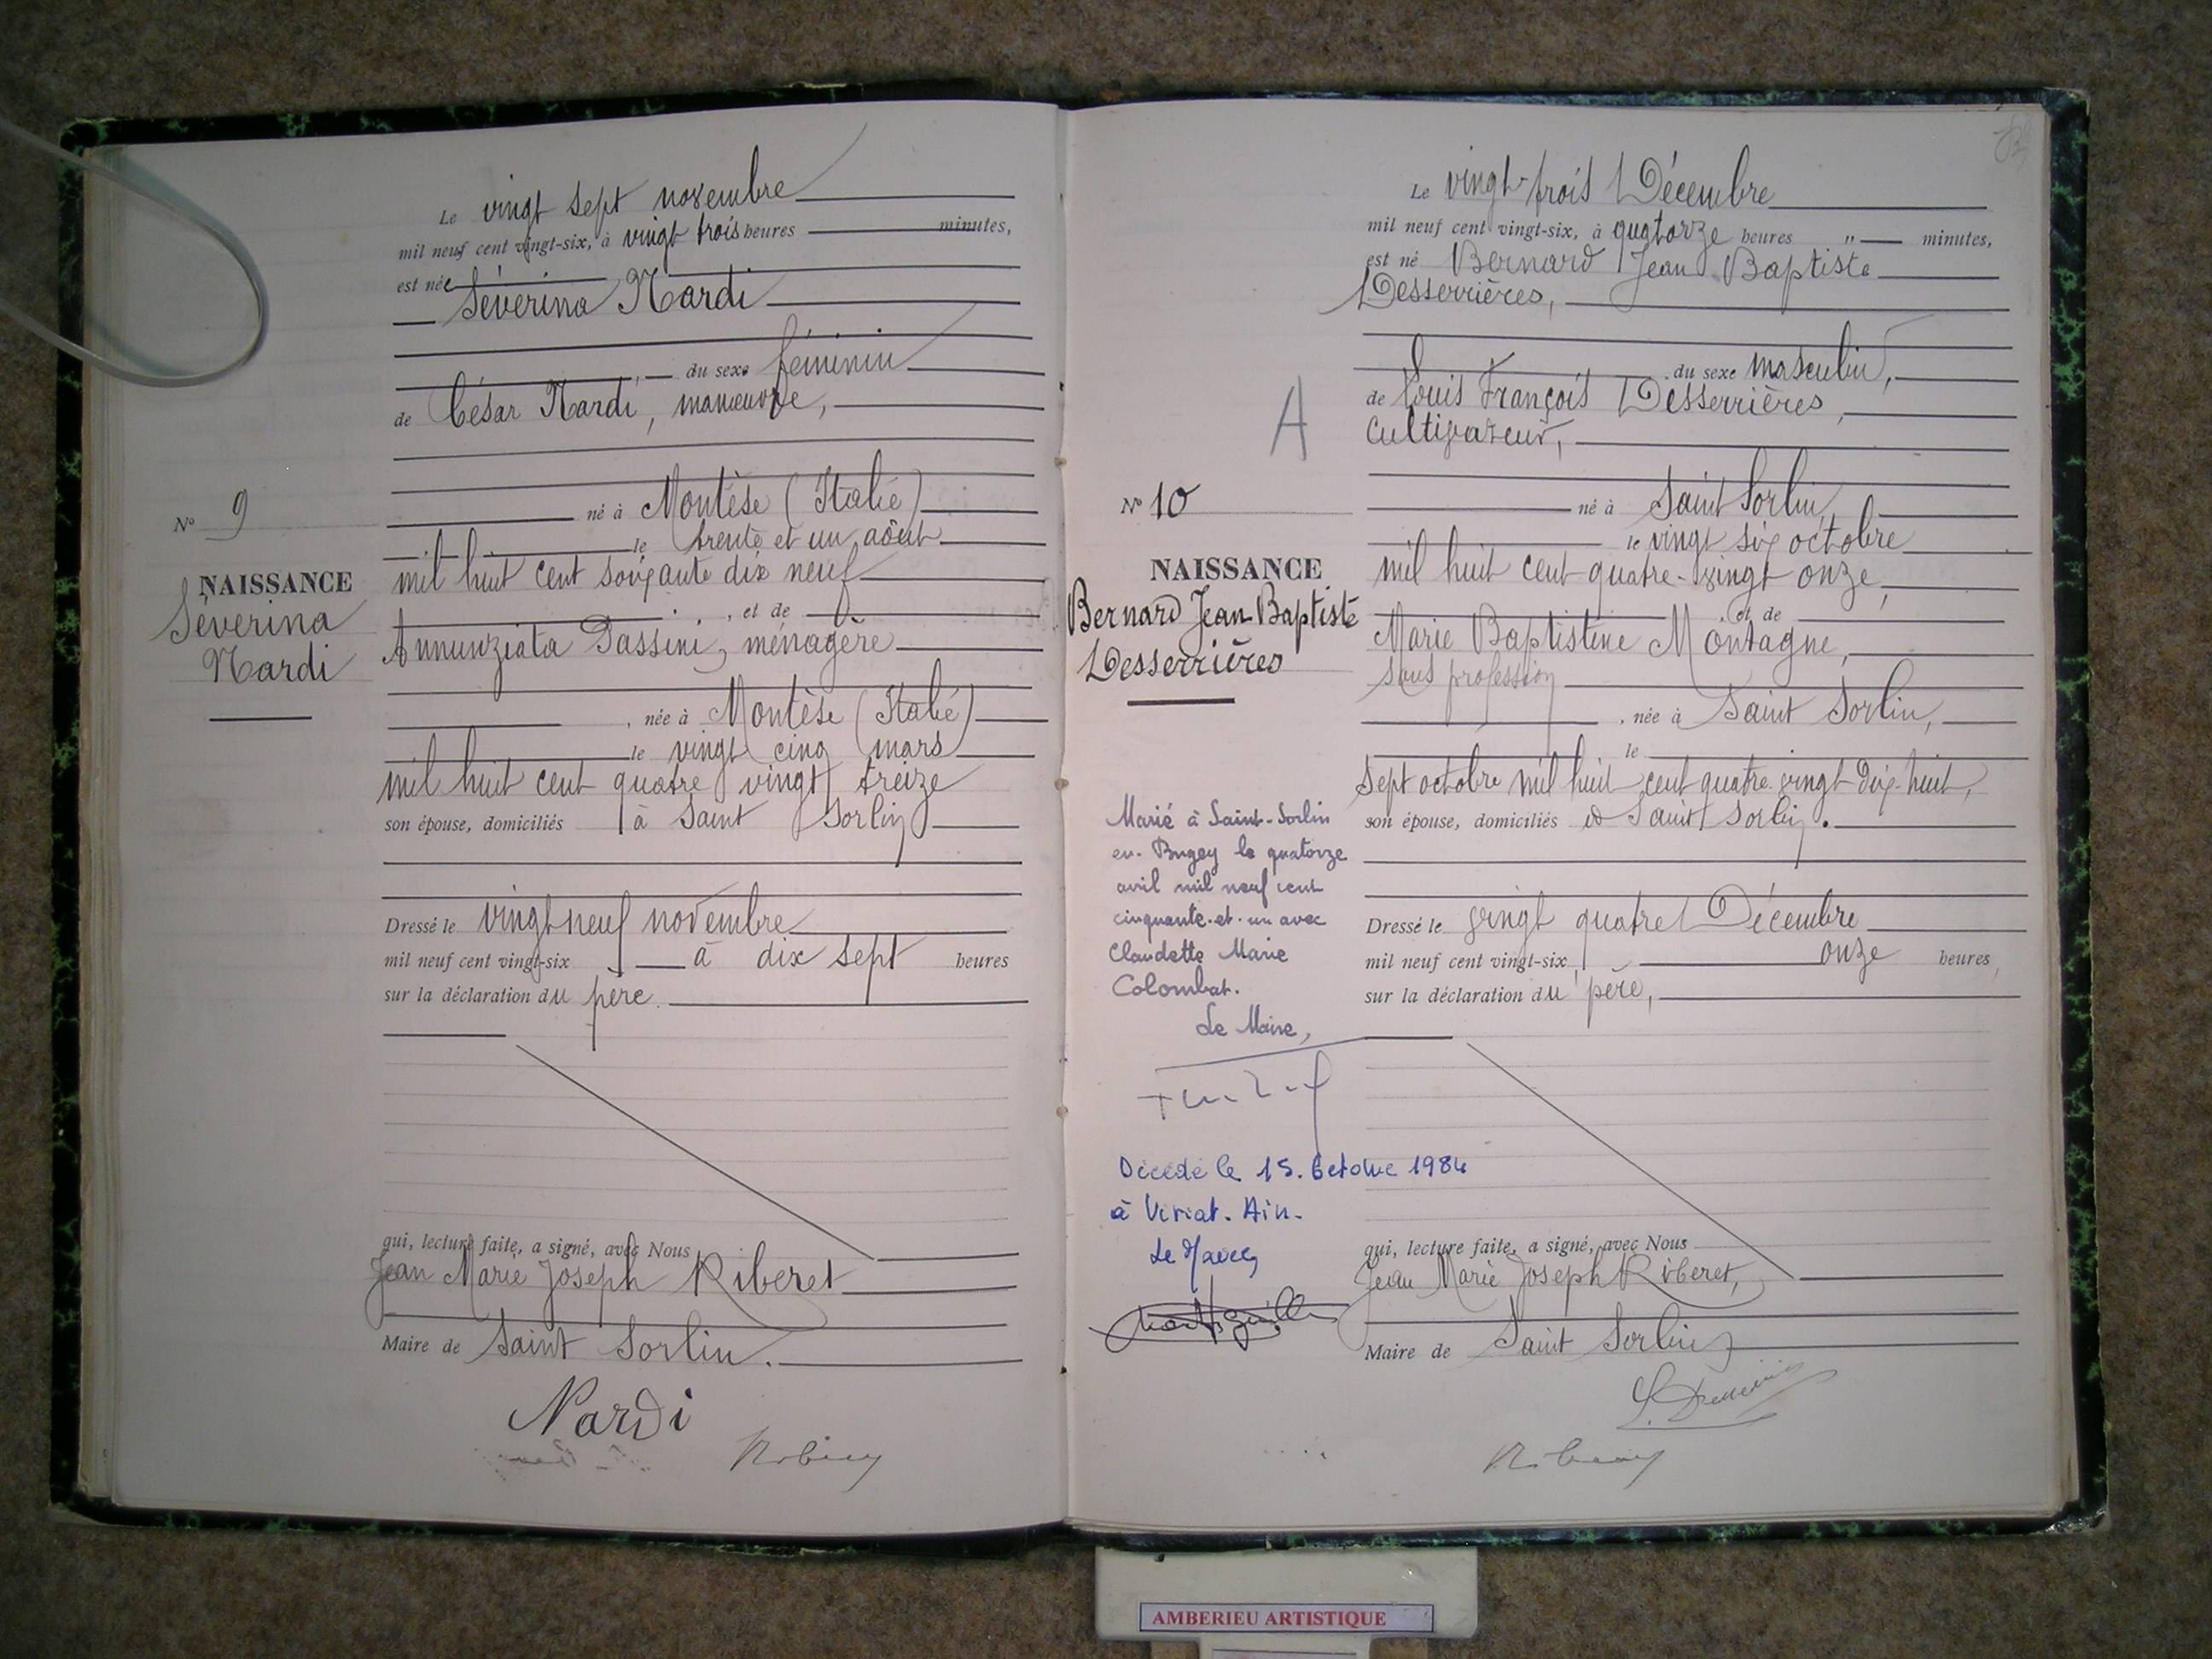 Le vingt sept novembre
mil neuf cent vingt-six, à vingt trois heures minutes,
est née
Séverina Nardi
du sexe féminin
de César Nardi, manœuvre,
né à Montèse (Italie)
le trente et un août
mil huit cent soixante dix neuf
, et de
Annunziata Passini, ménagère
, née à Montèse (Italie)
le vingt cinq mars
mil huit cent quatre vingt treize
son épouse, domiciliés à Saint Sorlin
Dressé le vingt neuf novembre
mil neuf cent vingt-six à dix sept heures
sur la déclaration du père
qui, lecture faite, a signé, avec Nous
Jean Marie Joseph Riberet
Maire de Saint Sorlin.
Nardi
N° 9
NAISSANCE
Séverina
Nardi
Le vingt-trois Décembre
mil neuf cent vingt-six, à quatorze heures " minutes,
est né Bernard Jean Baptiste
Desserrières,
du sexe masculin,
de Louis François Desserrières,
cultivateur,
né à Saint Sorlin,
le vingt six octobre
mil huit cent quatre-vingt onze,
, et de
Marie Baptistine Montagne,
sans profession
, née à Saint Sorlin,
le
sept octobre mil huit cent quatre-vingt dix-huit,
son épouse, domiciliés à Saint Sorlin.
Dressé le vingt quatre Décembre
mil neuf cent vingt-six, onze heures,
sur la déclaration du père,
qui, lecture faite, a signé, avec Nous
Jean Marie Joseph Riberet,
Maire de Saint Sorlin
A
N° 10
NAISSANCE
Bernard Jean Baptiste
Desserrières
Marié à Saint-Sorlin
en-Bugey le quatorze
avril mil neuf cent
cinquante-et-un avec
Claudette Marie
Colombat.
Le Maire,
Décédé le 15. Octobre 1984
à Viriat. Ain.
Le Maire,
AMBERIEU ARTISTIQUE